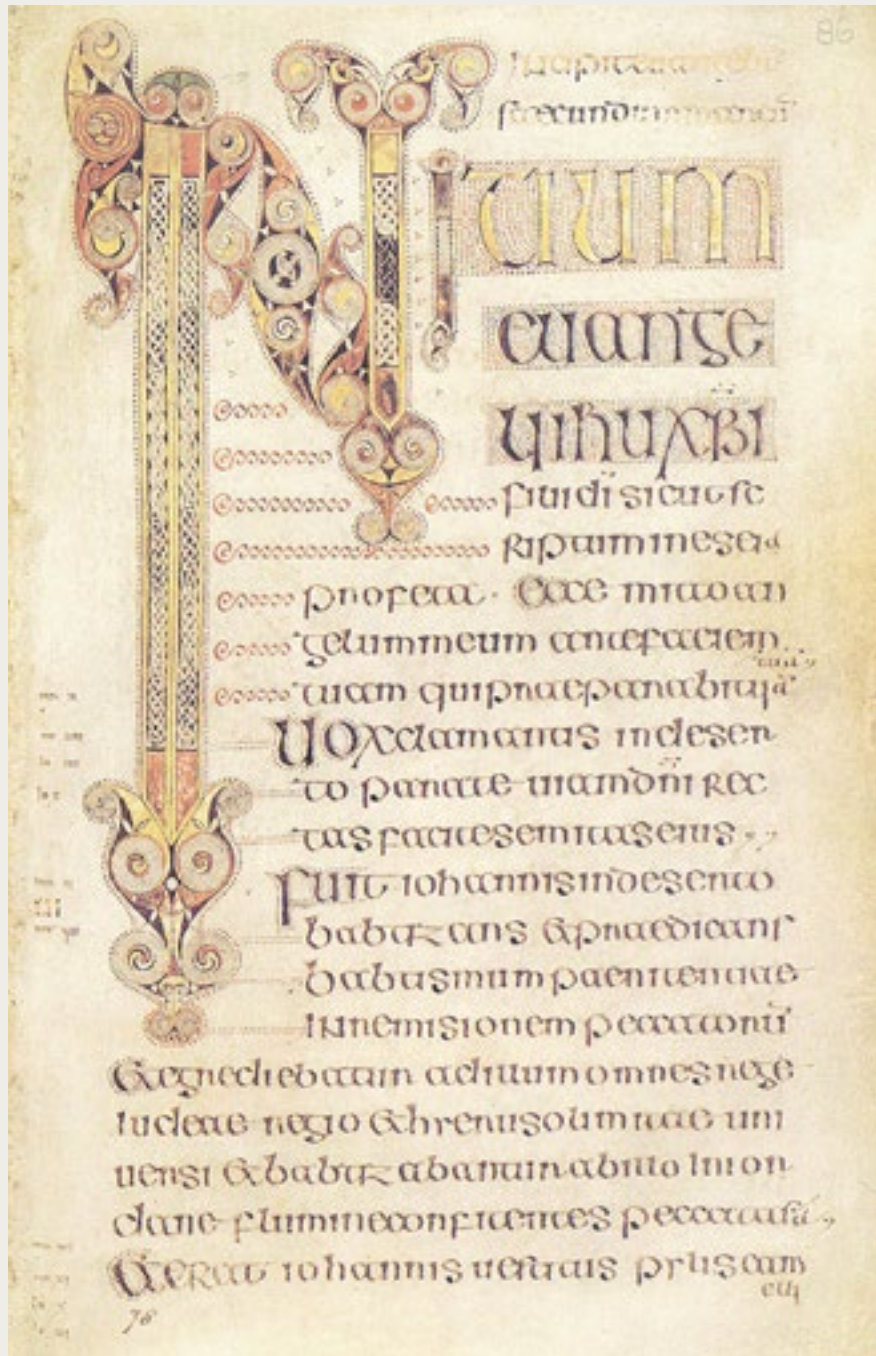 86
secundum marcū
INITIUM
euange
lii ihu xpi
fili di sicut sc
riptum in eseia
profeta · ecce mitto an
gelum meum ante faciem
tuam qui praeparabit uiā
tuā
uox clamantis in deser
to parate uiam dni rec
tas facite semitas eius
fuit iohannis in deserto
babtizans et praedicans
babtismum paenitentiae
in remisionem peccatorū
et egrediebatur ad illum omnes rege
iudeae regio et hierusolimitae uni
uersi et babtizabantur ab illo in ior
dane flumine confitentes peccata sua
et erat iohannis uestitus pylis cam
eli
76